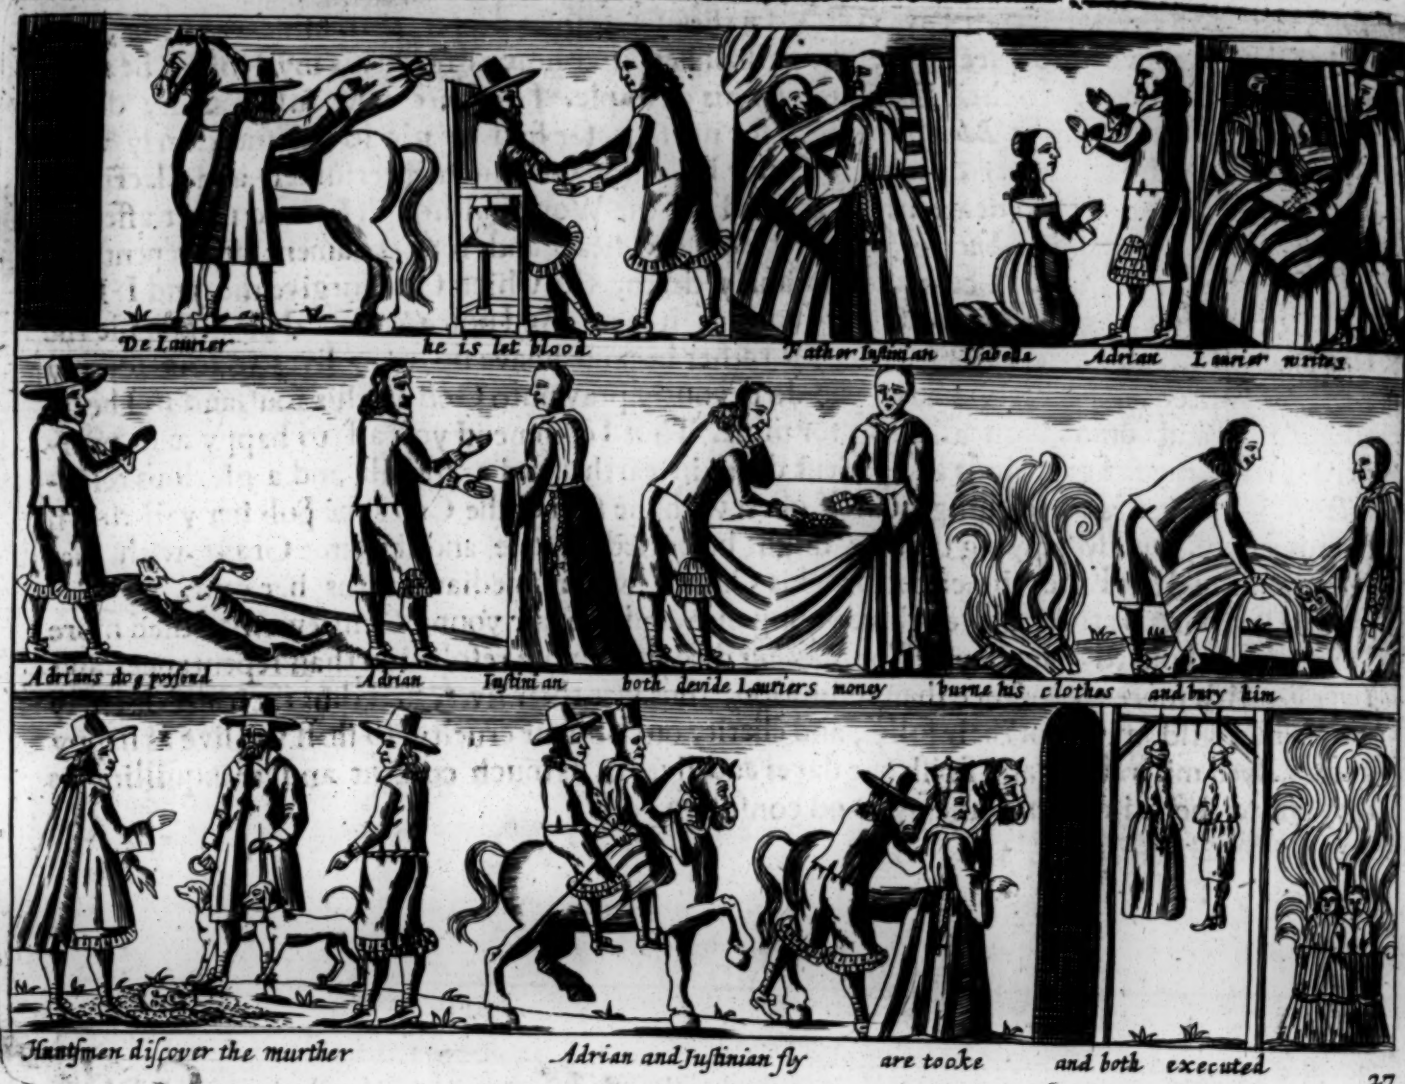 De Laurier he is let blood Father Iustinian Isabella Adrian Laurier writes.
Adrians dog poysond Adrian Iustinian both devide Lauriers money burne his clothes and bury him
Huntſmen diſcover the murther Adrian and Juſtinian fly are tooke and both executed
37